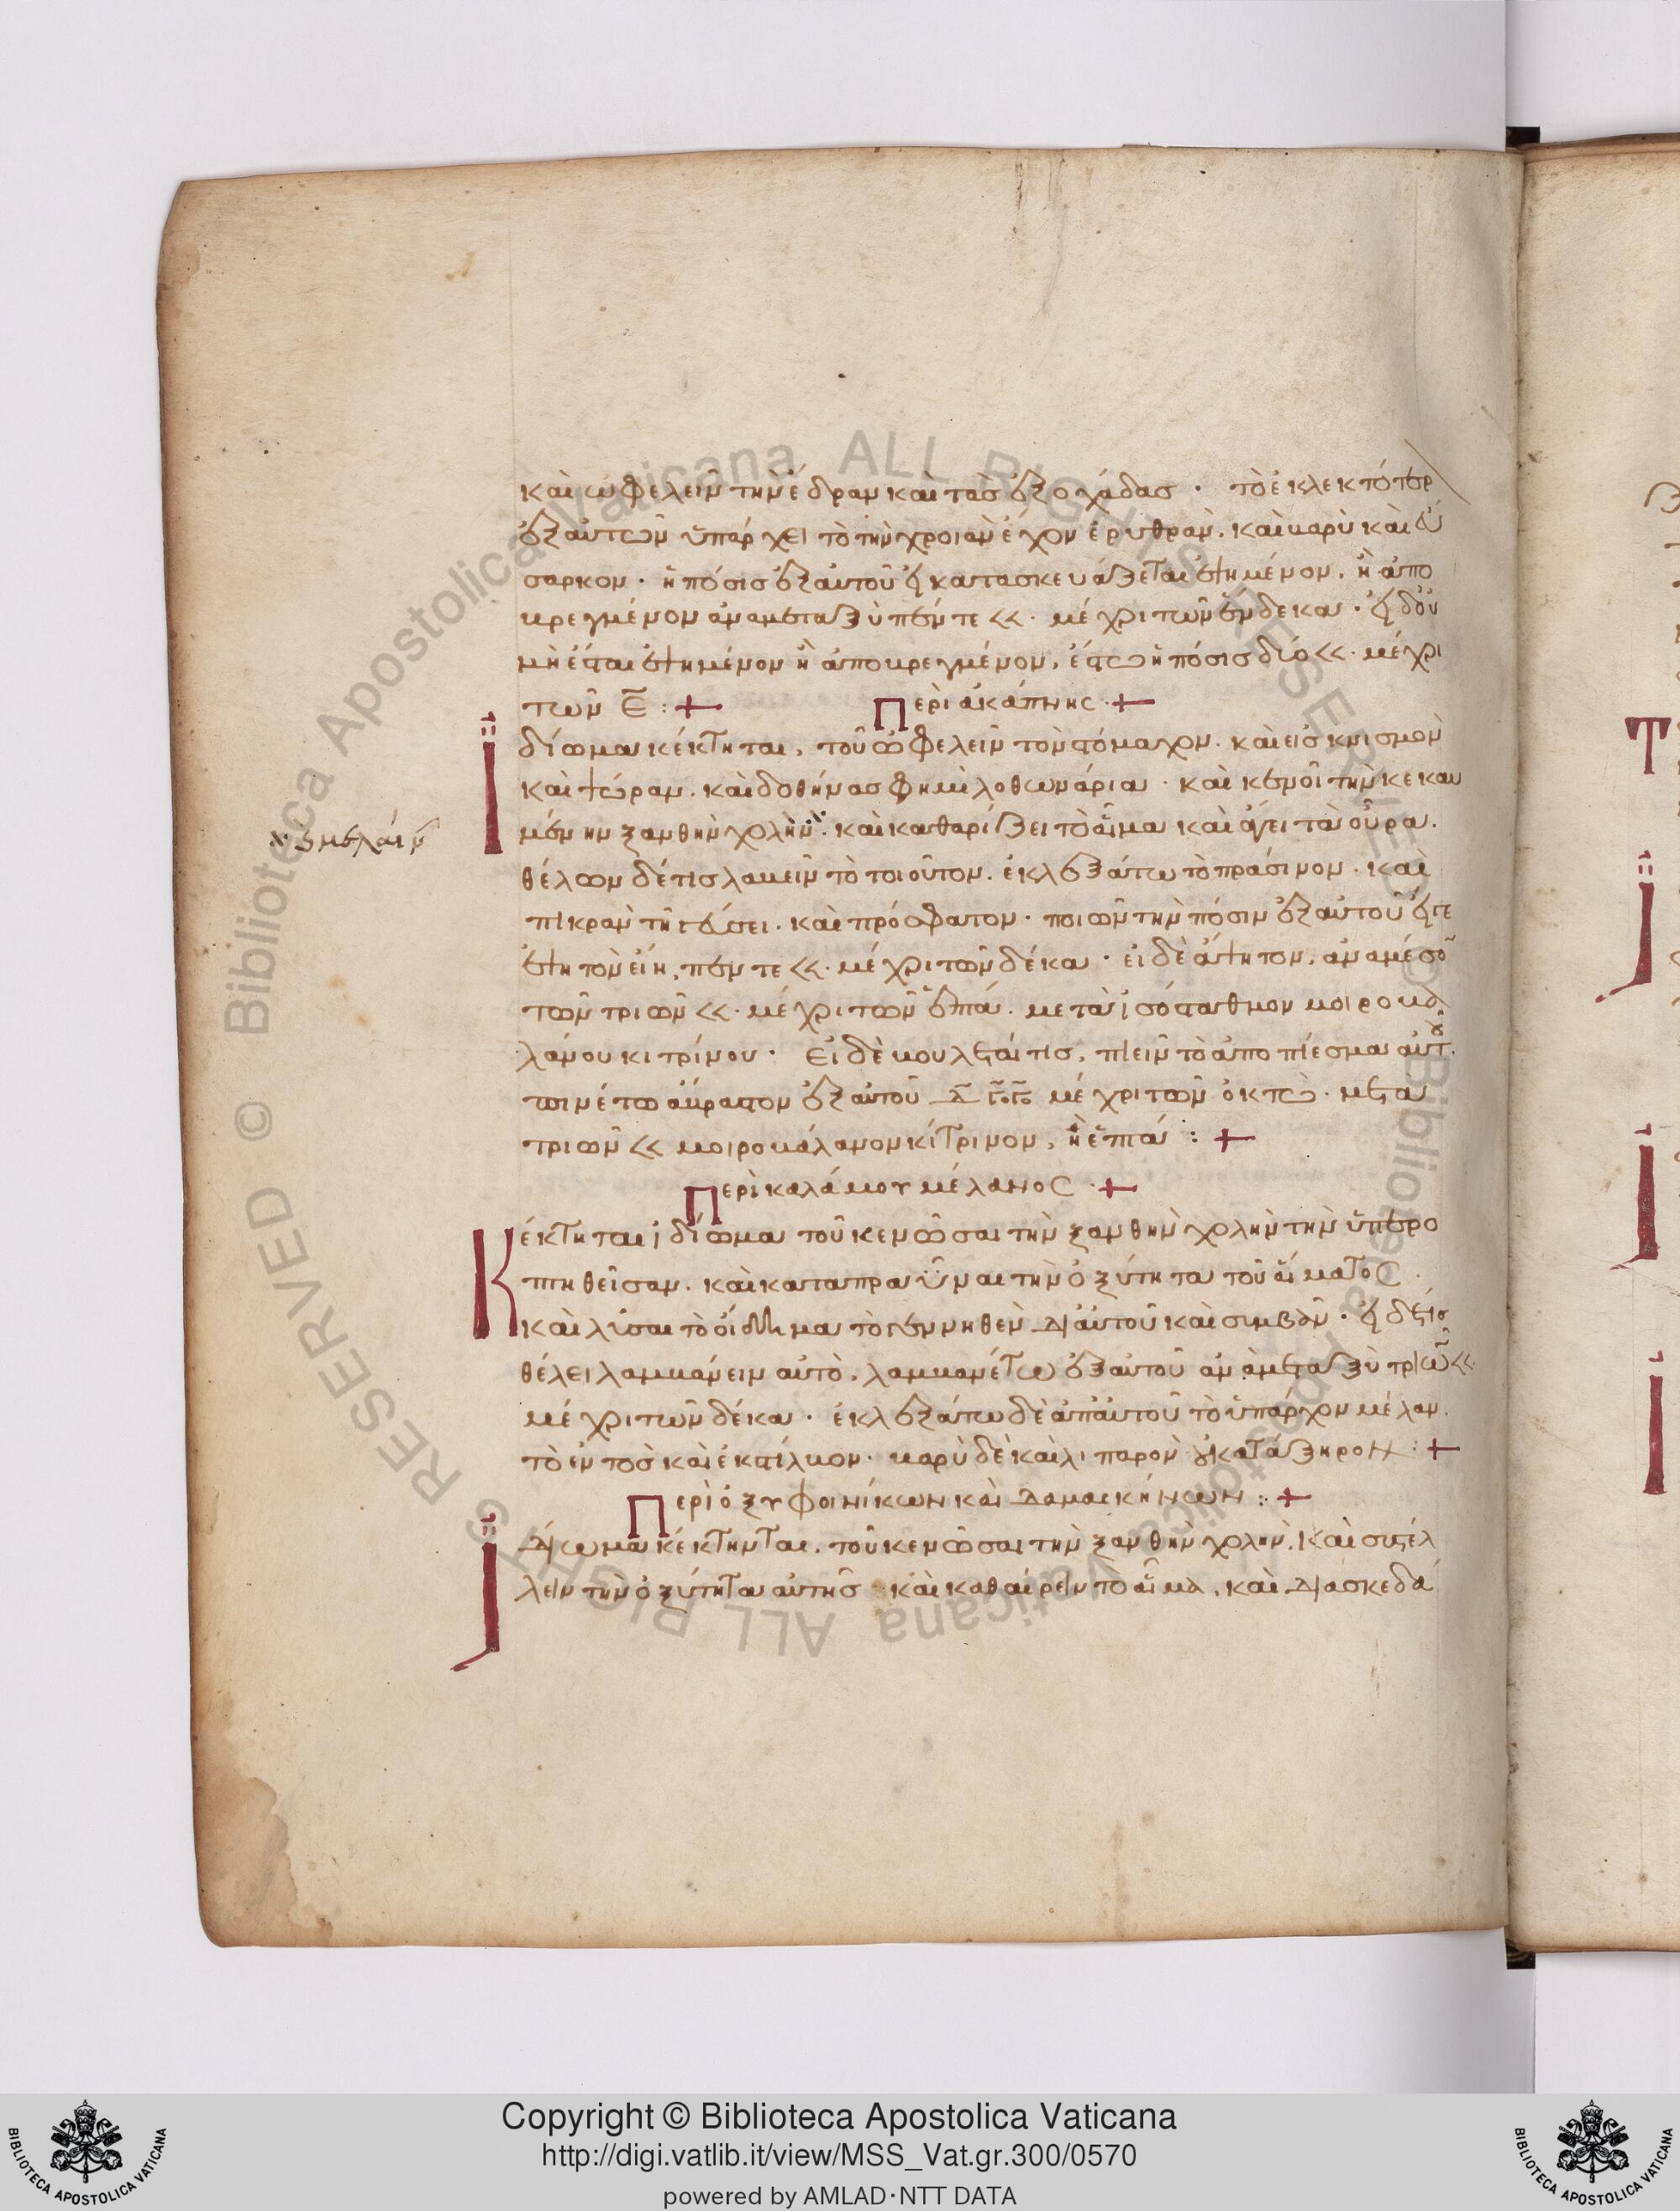 καὶ ὠφελεῖν τὴν ἕδραν καὶ τὰς ἐξοχάδας · τὸ ἐκλεκτότερ
ἐξ αὐτῶν ὑπάρχει τὸ τὴν χροιὰν ἔχον ἐρυθρὰν. καὶ βαρὺ καὶ εὔ
σαρκον · ἡ πόσις ἐξ αὐτοῦ εἰ κατασκευάζεται ἑψημένον. ἢ ἀπο
βρεγμένον ἀναμεταξὺ πέντε <<. μέχρι τῶν ἕνδεκα · εἰ δ οὐ
μὴ ἔσται ἑψημένον ἢ ἀποβρεγμένον, ἔστω ἡ πόσις δύο <<. μέχρι
τῶν ε̄ : +
Περὶ ἀκάπνης · +
Ἰδίωμα κέκτηται, τοῦ ὠφελεῖν τὸν στόμαχον. καὶ εἰς κνισμὸν
καὶ ψώραν. καὶ δοθήνας φημὶ λοθωνάρια · καὶ κενοῖ τὴν κεκαυ
μένην ξανθὴν χολὴν ⁜ καὶ καθαρίζει τὸ αἷμα καὶ ἄγει τὰ οὖρα.
θέλων δέ τις λαβεῖν τὸ τοιοῦτον. ἐκλεξάτω τὸ πράσινον · καὶ
πικρὰν τῇ γεύσει. καὶ πρόσφατον · ποιῶν τὴν πόσιν ἐξ αὐτοῦ εἴτε
ἑψητὸν εἴη, πέντε <<. μέχρι τῶν δέκα · εἰ δὲ ἄψητον, ἀναμέσο
τῶν τριῶν <<. μέχρι τῶν ἑπτά. μετὰ ἰσόσταθμον μοιροβα
λάνου κιτρίνου · εἰ δὲ βούλεταί τις, πιεῖν τὸ ἀποπίεσμα αὐτ
πινέτω ἄβραστον ἐξ αὐτοῦ μέχρι τῶν ὀκτὼ · μετα
τριῶν << μοιροβάλανον κίτρινον, ἢ ἑπτά : +
Περὶ καλάμου μέλανος · +
Κέκτηται ἰδίωμα τοῦ κενῶσαι τὴν ξανθὴν χολὴν τὴν ὑπερο
πτηθεῖσαν. καὶ καταπραΰναι τὴν ὀξύτητα τοῦ αἵματος.
καὶ λῦσαι τὸ οἴδημα τὸ γεννηθὲν δι αὐτοῦ καὶ συμβὰν · εἰ δέ τίς
θέλει λαμβάνειν αὐτὸ. λαμβανέτω ἐξ αὐτοῦ ἀνάμεταξὺ τριῶν <<
μέχρι τῶν δέκα · ἐκλεξάτω δὲ ἀπ αὐτοῦ τὸ ὑπάρχον μέλαν.
τὸ ἐντὸς καὶ ἐκστίλβον. βαρὺ δὲ καὶ λιπαρὸν κατάξηρον : +
Περὶ ὀξυφοινίκων καὶ δαμασκήνων : +
Ἰδίωμα κέκτηνται. τοῦ κενῶσαι τὴν ξανθὴν χολὴν. καὶ συστέλ
λειν τὴν ὀξύτητα αὐτῆς · καὶ καθαίρειν τὸ αἷμα. καὶ διασκεδά
Copyright © Biblioteca Apostolica Vaticana
http://digi.vatlib.it/view/MSS_Vat.gr.300/0570
powered by AMLAD·NTT DATA
BIBLIOTECA APOSTOLICA VATICANA
BIBLIOTECA APOSTOLICA VATICANA
© Biblioteca Apostolica Vaticana ALL RIGHTS RESERVED
© Biblioteca Apostolica Vaticana ALL RIGHTS RESERVED